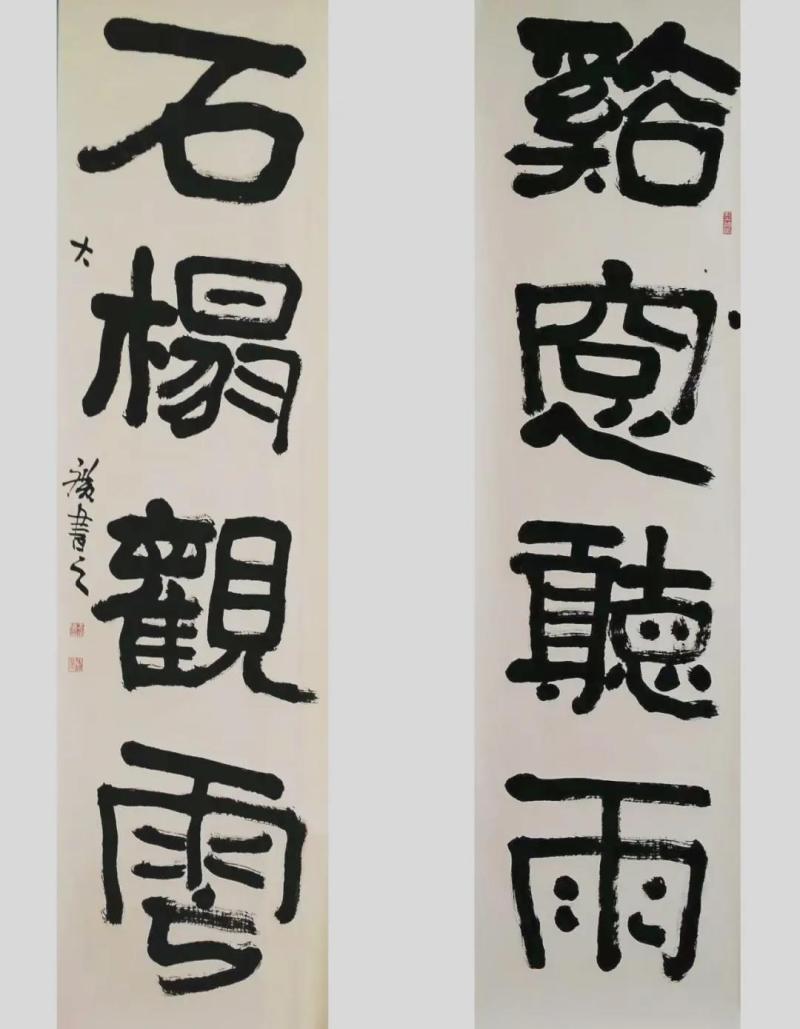 谿窻聽雨
石榻觀雲
大 書之